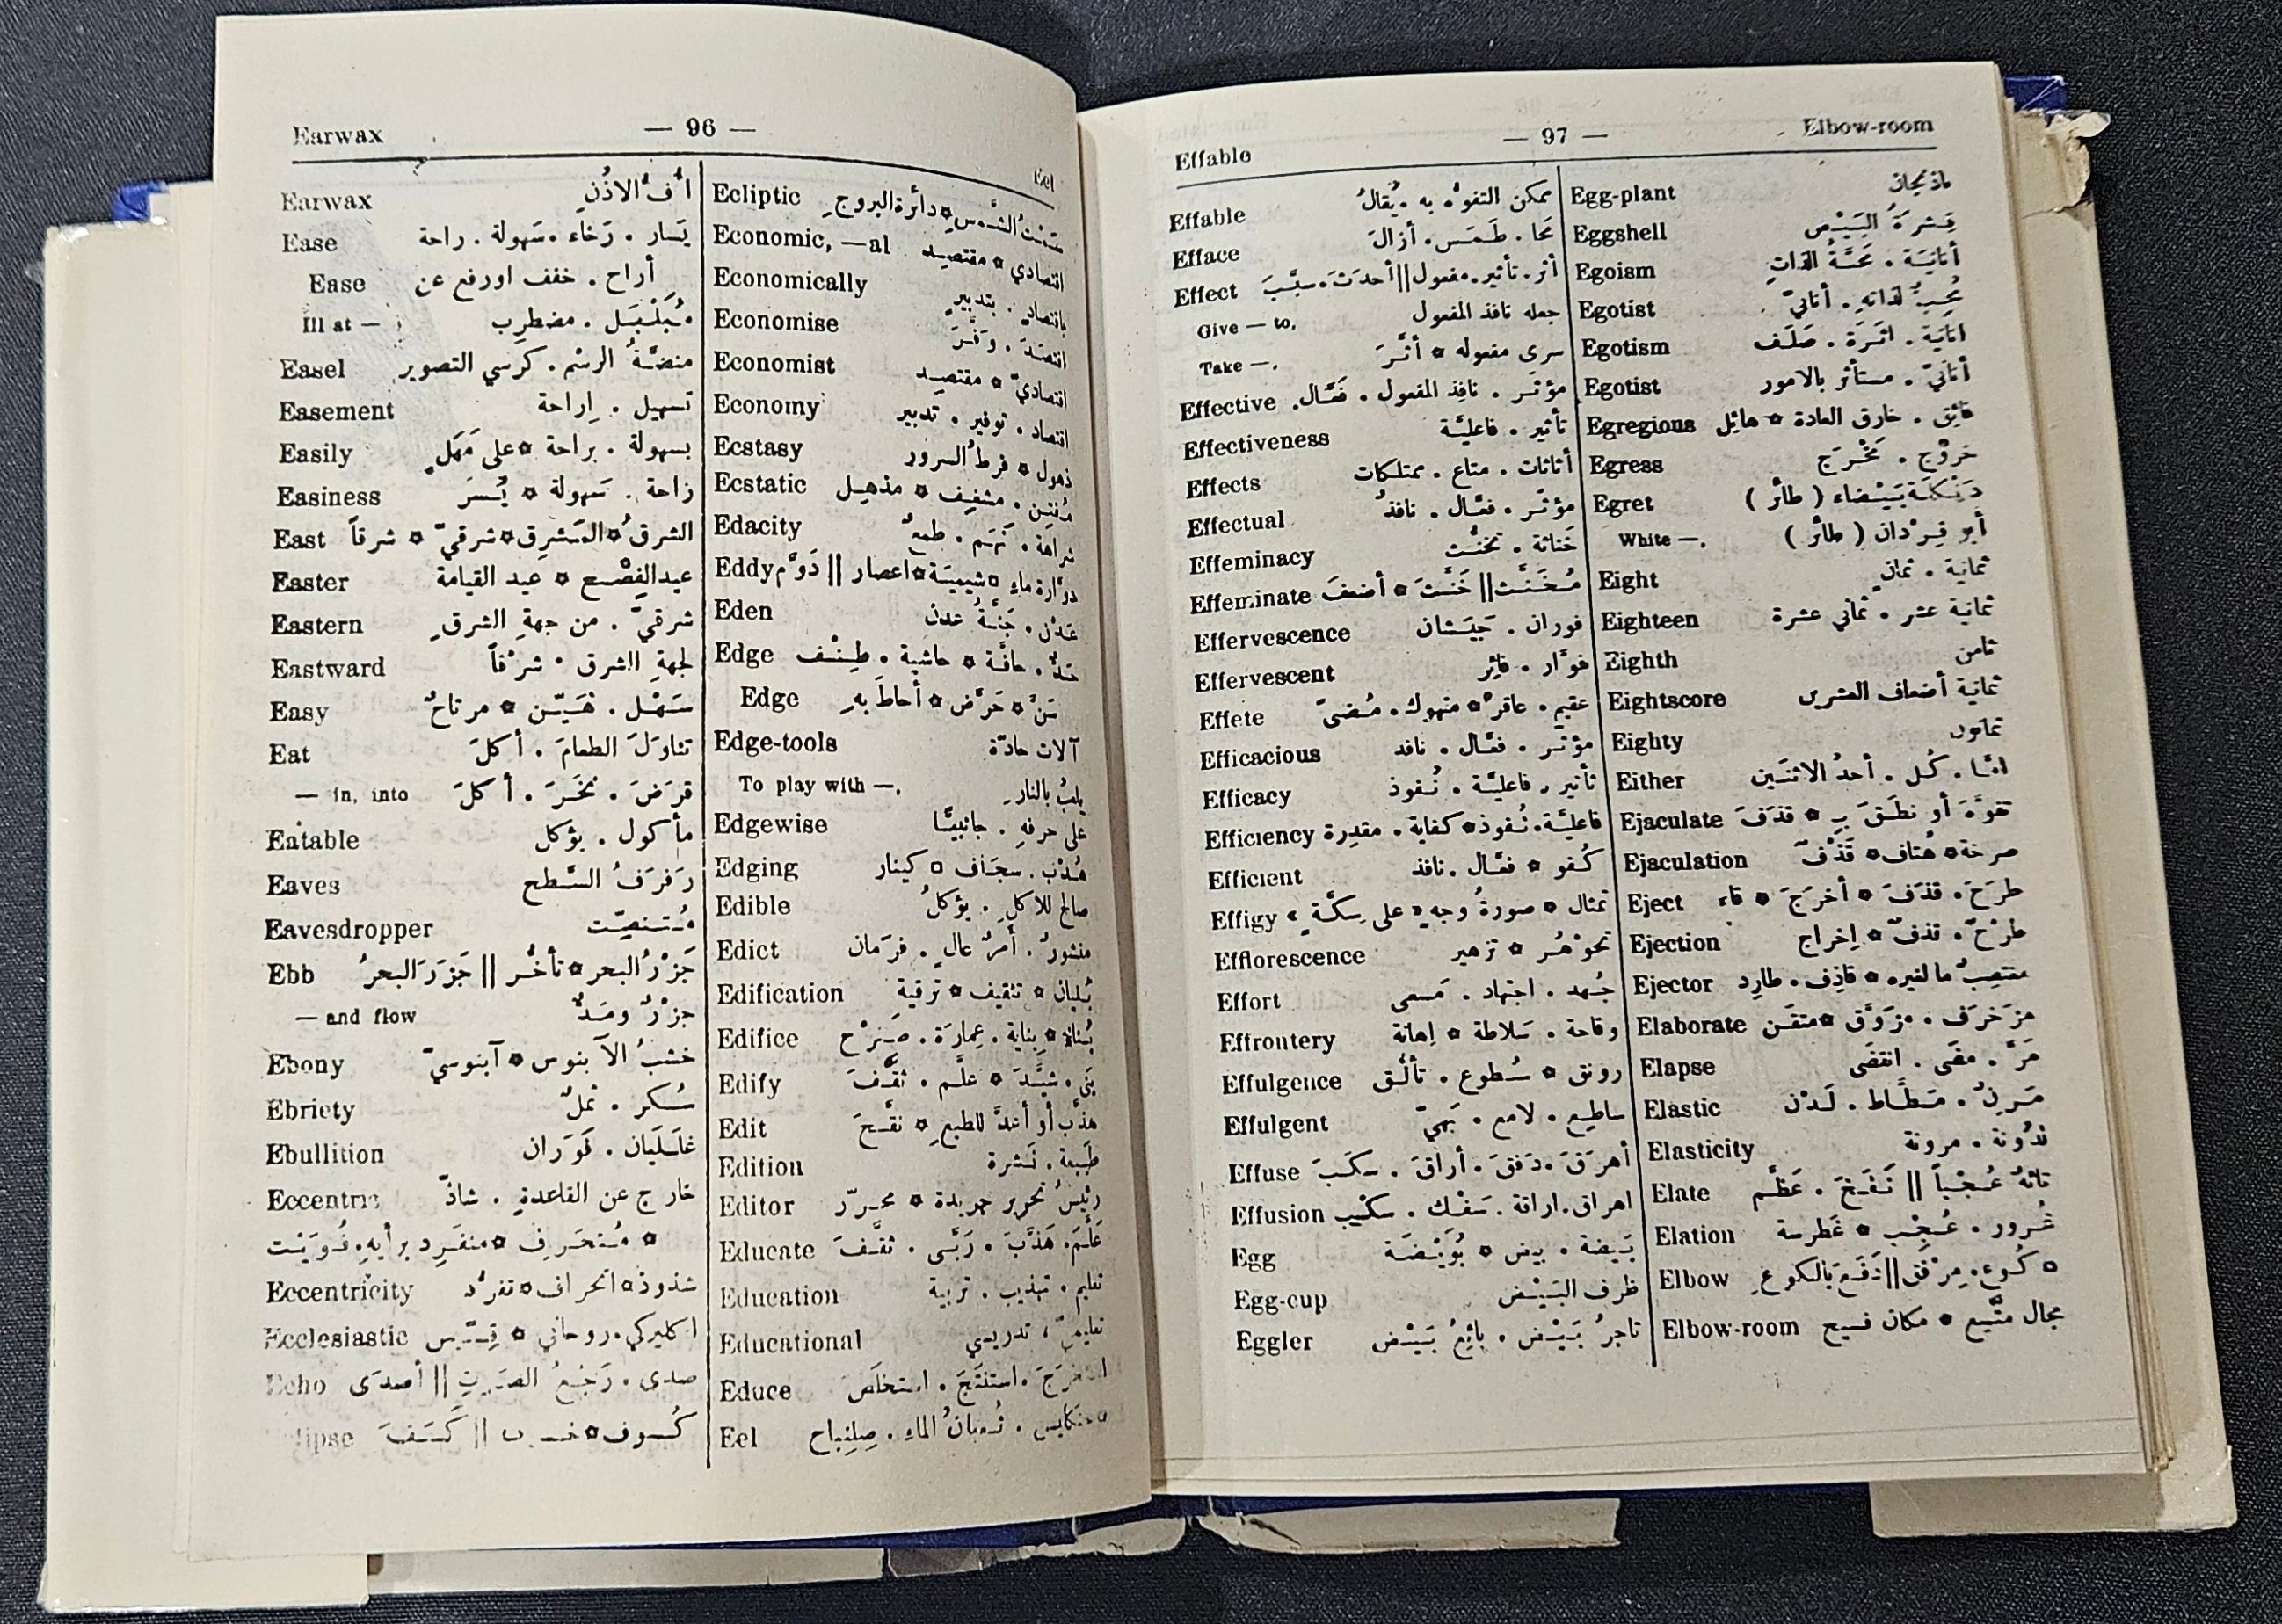 Earwax — 96 — Eel
Earwax اُفُ الاذُنِ
Ease يَسار . رَخاء . سَهولة . راحة
Ease أراح . خفف اورفع عن
Ill at — مُبَلْبَل . مضطرِب
Easel منصَّةُ الرسْم . كرسي التصوير
Easement تسهيل . اِراحة
Easily بسهولة . براحة ٥ على مَهَلٍ
Easiness راحة . سَهولة ٥ يُسرَ
East الشرقُ ٥ المَشرِق ٥ شرقيّ ٥ شرقاً
Easter عيد الفِصْح ٥ عيد القيامة
Eastern شرقيّ . من جهةِ الشرقِ
Eastward لجهةِ الشرق . شرْقاً
Easy سَهْل . هَيّن ٥ مرتاحٌ
Eat تناوَلَ الطعامَ . أكلَ
— in, into قرَضَ . نَخَرَ . أكلَ
Eatable مأكول . يؤكل
Eaves رَفرَفُ السَّطح
Eavesdropper مُتنصِّت
Ebb جَزْرُ البحر ٥ تأخُّر || جَزَرَ البحرُ
— and flow جزْرٌ ومَدٌّ
Ebony خشبُ الآبنوس ٥ آبنوسيّ
Ebriety سُكر . ثملٌ
Ebullition غلَيان . فَوَران
Eccentric خارج عن القاعدةِ . شاذّ
٥ مُنحَرِف ٥ منفَرِد برأيهِ .
Eccentricity شذوذ ٥ انحراف ٥ تفرُّد
Ecclesiastic اكليركي . روحاني ٥ قِسّيس
Echo صدى . رَجْعُ الصَوتِ || أصدَى
كُسوف ٥ || كَسَفَ
Ecliptic الشَّمس ٥ دائرة البروجِ
Economic, —al اقتصادي ٥ مقتصِد
Economically باقتصادٍ . بتدبيرٍ
Economise اقتصَدَ . وَفَّرَ
Economist اقتصاديّ ٥ مقتصِد
Economy اقتصاد . توفير . تدبير
Ecstasy ذهول ٥ فرطُ السرور
Ecstatic مذهِل
Edacity شراهة . نَهَم . طمعٌ
Eddy دوَّارة ماءٍ ٥ اعصار || دَوَّم
Eden عَدْن . جَنَّةُ عدن
Edge حَدٌّ . حافَّة ٥ حاشية . طِنْف
Edge سَنَّ ٥ حَرَّض ٥ أحاطَ بهِ
Edge-tools آلات حادَّة
To play with —, يلعبُ بالنارِ
Edgewise على حرفهِ . جانبيًّا
Edging هُدْب . سجَاف ٥ كينار
Edible صالح للاكلِ . يؤكلُ
Edict منشورٌ . أمرٌ عالٍ . فرَمان
Edification بُنيان ٥ تثقيف ٥ تَرقية
Edifice بِناية . عِمارَة . صَرْح
Edify بَنى . شيَّدَ ٥ علَّم . ثقَّفَ
Edit هذَّب أو أعدَّ للطبعِ ٥ نقَّحَ
Edition طَبعة . نَشرة
Editor رئيسُ تحرير جريدة ٥ محرّر
Educate علَّمَ . هَذَّبَ . رَبَّى . ثقَّفَ
Education تعليم . تهذيب . تربية
Educational تعليميّ ، تدريسي
Educe استخرَجَ . استنتَجَ . استخلَصَ
Eel ثُعبانُ الماء . صِلِنباح
Effable — 97 — Elbow-room
Effable ممكن التفوُّه به . يُقالُ
Efface مَحا . طَمَس . أزالَ
Effect أثر . تأثير . مفعول || أحدَثَ . سبَّبَ
Give — to, جعله نافذ المفعول
Take —, سرى مفعوله ٥ أثَّرَ
Effective مؤثّر . نافِذ المفعول . فَعَّال .
Effectiveness تأثير . فاعليَّة
Effects أثاثات . متاع . ممتلكات
Effectual مؤثّر . فعَّال . نافذُ
Effeminacy خَناثة . تخنُّث
Effeminate مُخَنَّث || خَنَّثَ ٥ أضعفَ
Effervescence فوران . جَيَشان
Effervescent فوَّار . فائِر
Effete عقيم . عاقرٌ ٥ منهوك . مُضنىً
Efficacious مؤثّر . فعَّال . نافذ
Efficacy تأثير . فاعليَّة . نُفوذ
Efficiency فاعليَّة . نُفوذ ٥ كفاية . مقدِرة
Efficient كُفو ٥ فعَّال . نافذ
Effigy تمثال ٥ صورةُ وجهٍ « على سِكَّةٍ »
Efflorescence تجوْهُر ٥ تزهير
Effort جُهد . اجتهاد . مَسعى
Effrontery وقاحة . سَلاطة ٥ اِهانة
Effulgence رونق ٥ سُطوع . تألُّق
Effulgent ساطِع . لامع . بَهيّ
Effuse أهرَقَ . دَفقَ . أراقَ . سكَبَ
Effusion اهراق . اراقة . سَفْك . سكْب
Egg بَيضة . بيض ٥ بُوَيْضَة
Egg-cup ظرف البَيْض
Eggler تاجرُ بَيْض . بائِعُ بَيْض
Egg-plant باذنجان
Eggshell قِشرَةُ البَيْض
Egoism أنانيَة . مَحبَّةُ الذاتِ
Egotist مُحِبٌّ لذاتهِ . أنانيّ
Egotism انانيَة . اثَرَة . صَلَف
Egotist أنانيّ . مستأثر بالامور
Egregious فائِق . خارق العادة ٥ هائِل
Egress خروْج . مَخْرَج
Egret بَيْضاء ( طائر )
White —, أبو قِرْدان ( طائر )
Eight ثمانية . ثمانٍ
Eighteen ثمانية عشر . ثماني عشرة
Eighth ثامن
Eightscore ثمانية أضعاف العشرين
Eighty ثمانون
Either امَّا . كُل . أحدُ الاثنَين
Ejaculate تفوَّهَ أو نطَقَ بِـ ٥ قذَفَ
Ejaculation صرخة ٥ هُتاف ٥ قَذْفٌ
Eject طرَحَ . قذَفَ ٥ أخرَجَ ٥ قاء
Ejection طرْحٌ . قذفٌ ٥ اِخراج
Ejector مغتصِبُ ما لغيره ٥ قاذِف . طارِد
Elaborate مزَخرَف . مزَوَّق ٥ متقَن
Elapse مَرَّ . مضَى . انقضَى
Elastic مَرِنٌ . مَطَّاط . لَدْن
Elasticity لدُونة . مرونة
Elate تائهٌ عُجْباً || نَفَخَ . عَظَّم
Elation غُرور . عُجْب ٥ غَطرسة
Elbow ٥ كُوع . مِرْفَق || دَفَعَ بالكوعِ
Elbow-room مجال متَّسِع ٥ مكان فسيح